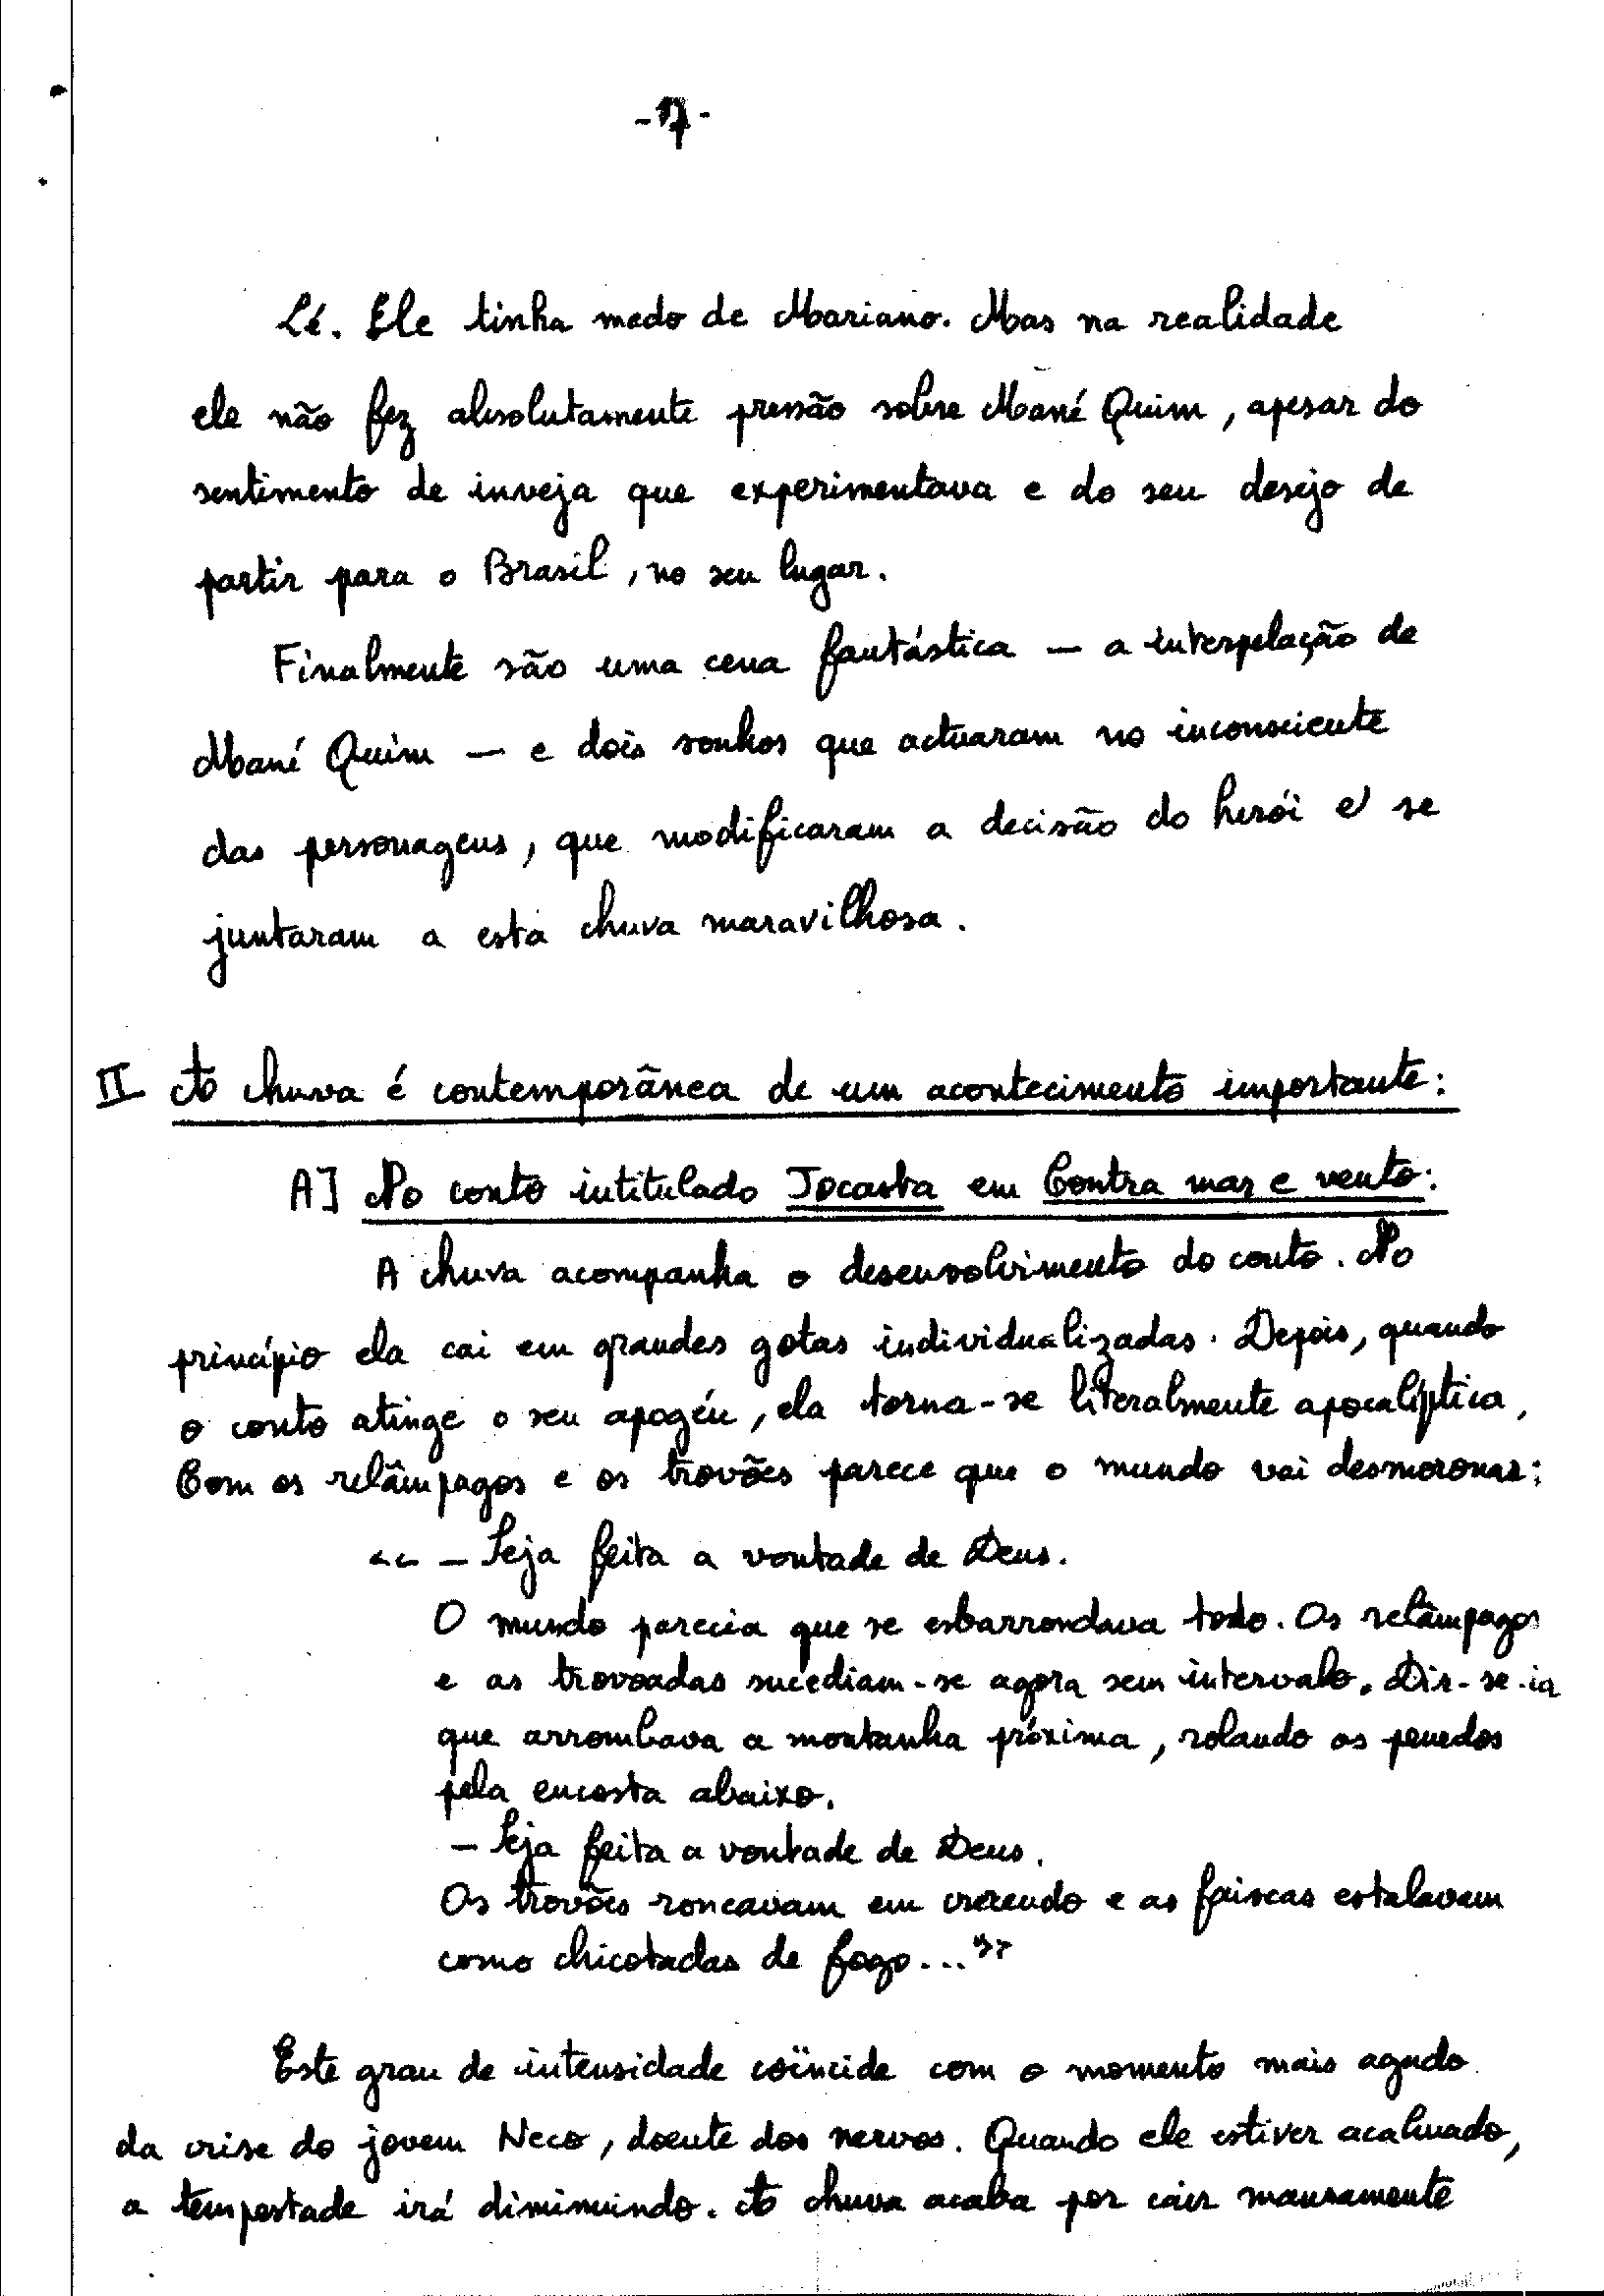 -17-
Lé. Ele tinha medo de Mariano. Mas na realidade
ele não fez absolutamente pressão sobre Mané Quim, apesar do
sentimento de inveja que experimentava e do seu desejo de
partir para o Brasil, no seu lugar.
Finalmente são uma cena fantástica — a interpelação de
Mané Quim — e dois sonhos que actuaram no inconsciente
das personagens, que modificaram a decisão do herói e se
juntaram a esta chuva maravilhosa.
II A chuva é contemporânea de um acontecimento importante:
A] No conto intitulado Jocasta em Contra mar e vento:
A chuva acompanha o desenvolvimento do conto. No
princípio ela cai em grandes gotas individualizadas. Depois, quando
o conto atinge o seu apogéu, ela torna-se literalmente apocalíptica,
Com os relâmpagos e os trovões parece que o mundo vai desmoronar:
<< — Seja feita a vontade de Deus.
O mundo parecia que se esbarrondava todo. Os relâmpagos
e as trovoadas sucediam-se agora sem intervalo. Dir-se-ia
que arrombava a montanha próxima, rolando os penedos
pela encosta abaixo.
— Seja feita a vontade de Deus.
Os trovões roncavam em crecendo e as faiscas estalavam
como chicotadas de fogo... >>
Este grau de intensidade coïncide com o momento mais agudo
da crise do jovem Neco, doente dos nervos. Quando ele estiver acalmado,
a tempestade irá diminuindo. A chuva acaba por cair mansamente